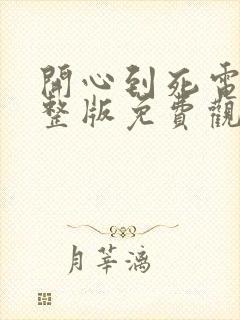 開心到死電
整版免費觀
月莘漓